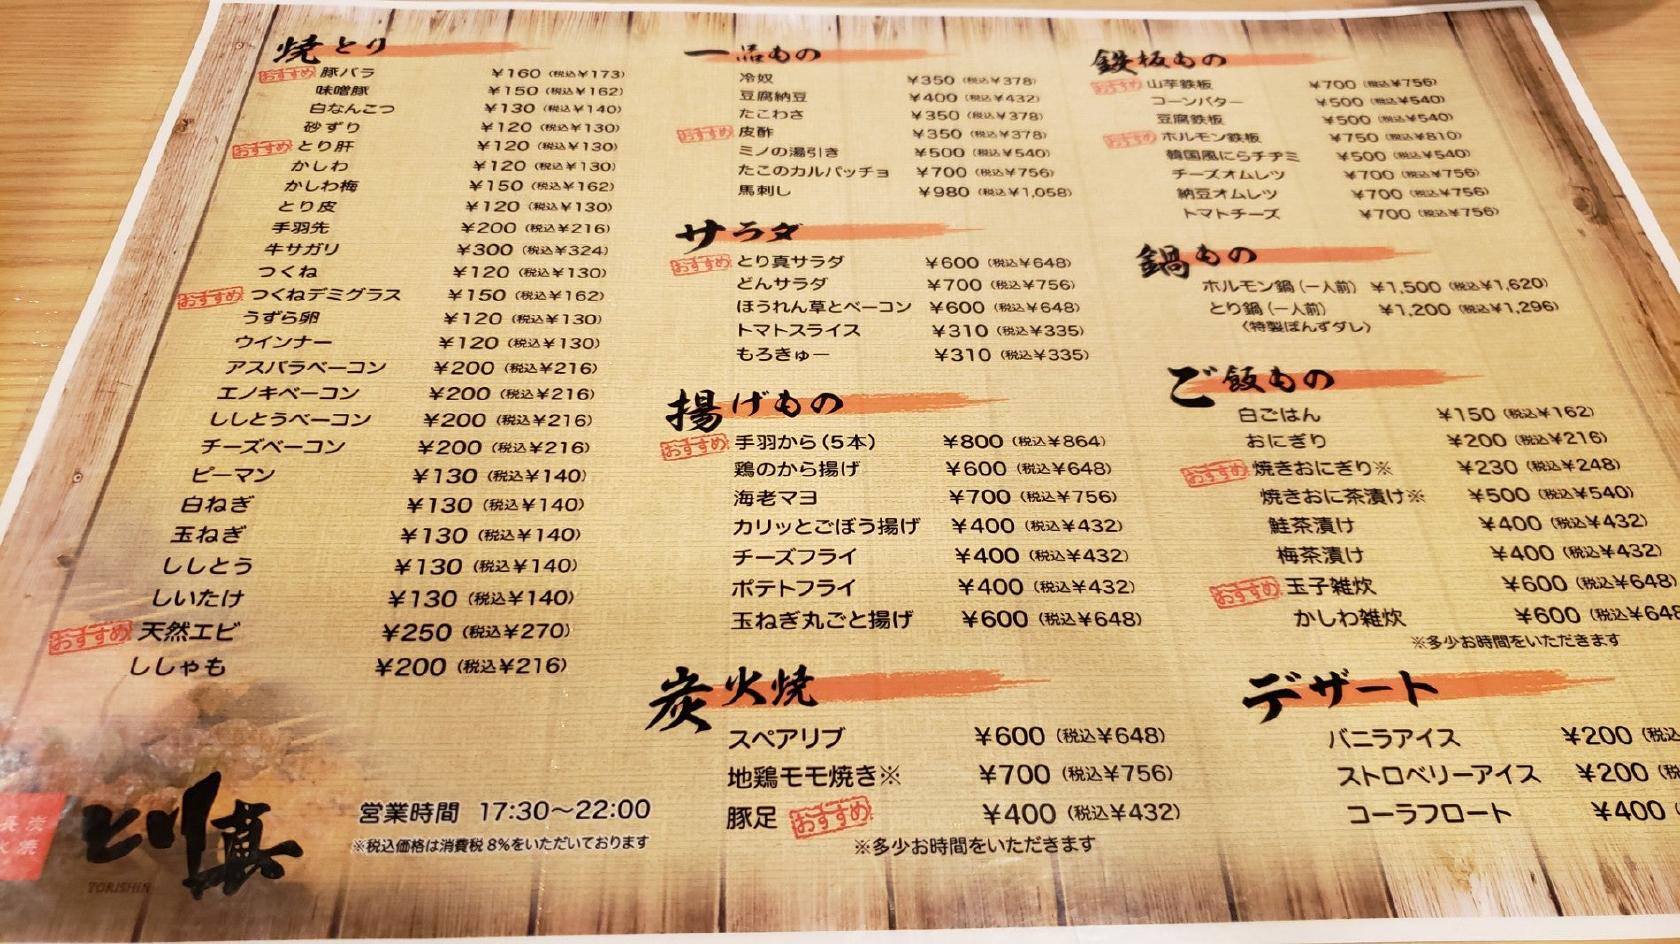 焼とり
おすすめ 豚バラ ¥160 (税込¥173)
味噌豚 ¥150 (税込¥162)
白なんこつ ¥130 (税込¥140)
砂ずり ¥120 (税込¥130)
おすすめ とり肝 ¥120 (税込¥130)
かしわ ¥120 (税込¥130)
かしわ梅 ¥150 (税込¥162)
とり皮 ¥120 (税込¥130)
手羽先 ¥200 (税込¥216)
牛サガリ ¥300 (税込¥324)
つくね ¥120 (税込¥130)
おすすめ つくねデミグラス ¥150 (税込¥162)
うずら卵 ¥120 (税込¥130)
ウインナー ¥120 (税込¥130)
アスパラベーコン ¥200 (税込¥216)
エノキベーコン ¥200 (税込¥216)
ししとうベーコン ¥200 (税込¥216)
チーズベーコン ¥200 (税込¥216)
ピーマン ¥130 (税込¥140)
白ねぎ ¥130 (税込¥140)
玉ねぎ ¥130 (税込¥140)
ししとう ¥130 (税込¥140)
しいたけ ¥130 (税込¥140)
おすすめ 天然エビ ¥250 (税込¥270)
ししゃも ¥200 (税込¥216)
炭火焼
とり真
TORISHIN
営業時間 17:30～22:00
※税込価格は消費税8%をいただいております
一品もの
冷奴 ¥350 (税込¥378)
豆腐納豆 ¥400 (税込¥432)
たこわさ ¥350 (税込¥378)
おすすめ 皮酢 ¥350 (税込¥378)
ミノの湯引き ¥500 (税込¥540)
たこのカルパッチョ ¥700 (税込¥756)
馬刺し ¥980 (税込¥1,058)
サラダ
おすすめ とり真サラダ ¥600 (税込¥648)
どんサラダ ¥700 (税込¥756)
ほうれん草とベーコン ¥600 (税込¥648)
トマトスライス ¥310 (税込¥335)
もろきゅー ¥310 (税込¥335)
揚げもの
おすすめ 手羽から(5本) ¥800 (税込¥864)
鶏のから揚げ ¥600 (税込¥648)
海老マヨ ¥700 (税込¥756)
カリッとごぼう揚げ ¥400 (税込¥432)
チーズフライ ¥400 (税込¥432)
ポテトフライ ¥400 (税込¥432)
玉ねぎ丸ごと揚げ ¥600 (税込¥648)
炭火焼
スペアリブ ¥600 (税込¥648)
地鶏モモ焼き※ ¥700 (税込¥756)
豚足 おすすめ ¥400 (税込¥432)
※多少お時間をいただきます
鉄板もの
おすすめ 山芋鉄板 ¥700 (税込¥756)
コーンバター ¥500 (税込¥540)
豆腐鉄板 ¥500 (税込¥540)
おすすめ ホルモン鉄板 ¥750 (税込¥810)
韓国風にらチヂミ ¥500 (税込¥540)
チーズオムレツ ¥700 (税込¥756)
納豆オムレツ ¥700 (税込¥756)
トマトチーズ ¥700 (税込¥756)
鍋もの
ホルモン鍋(一人前) ¥1,500 (税込¥1,620)
とり鍋(一人前) ¥1,200 (税込¥1,296)
〈特製ぽんずダレ〉
ご飯もの
白ごはん ¥150 (税込¥162)
おにぎり ¥200 (税込¥216)
おすすめ 焼きおにぎり※ ¥230 (税込¥248)
焼きおに茶漬け※ ¥500 (税込¥540)
鮭茶漬け ¥400 (税込¥432)
梅茶漬け ¥400 (税込¥432)
おすすめ 玉子雑炊 ¥600 (税込¥648)
かしわ雑炊 ¥600 (税込¥648
※多少お時間をいただきます
デザート
バニラアイス ¥200 (税込
ストロベリーアイス ¥200 (税
コーラフロート ¥400 (